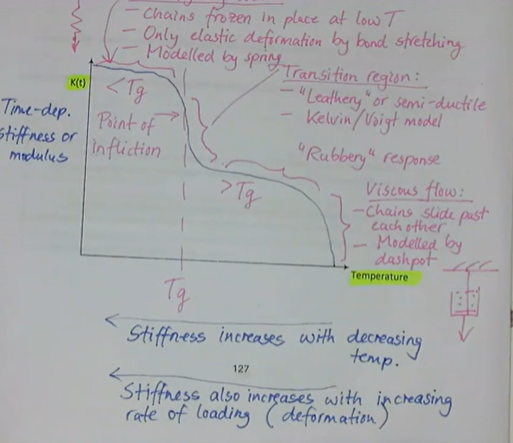 – Chains frozen in place at low T
– Only elastic deformation by bond stretching
– Modelled by spring
K(t)
< Tg
Transition region:
– "Leathery" or semi-ductile
– Kelvin/Voigt model
Time-dep.
stiffness or
modulus
Point of
infliction
"Rubbery" response
> Tg
Viscous flow:
– Chains slide past
each other
– Modelled by
dashpot
Temperature
Tg
Stiffness increases with decreasing
temp.
127
Stiffness also increases with increasing
rate of loading (deformation)